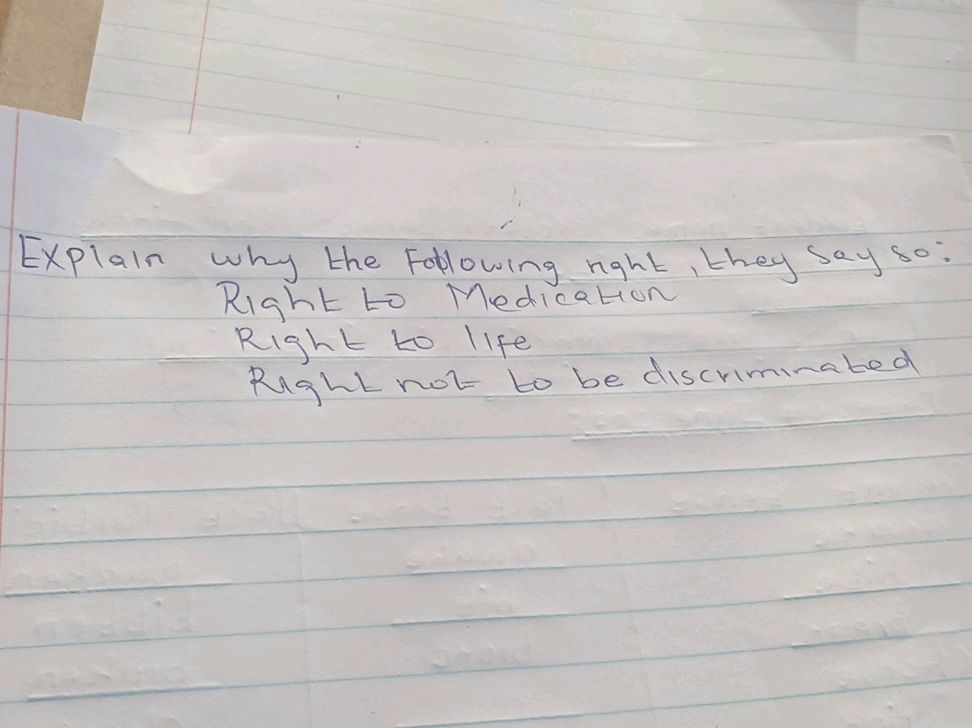 Explain why the Following right, they say so:
Right to Medication
Right to life
Right not to be discriminated